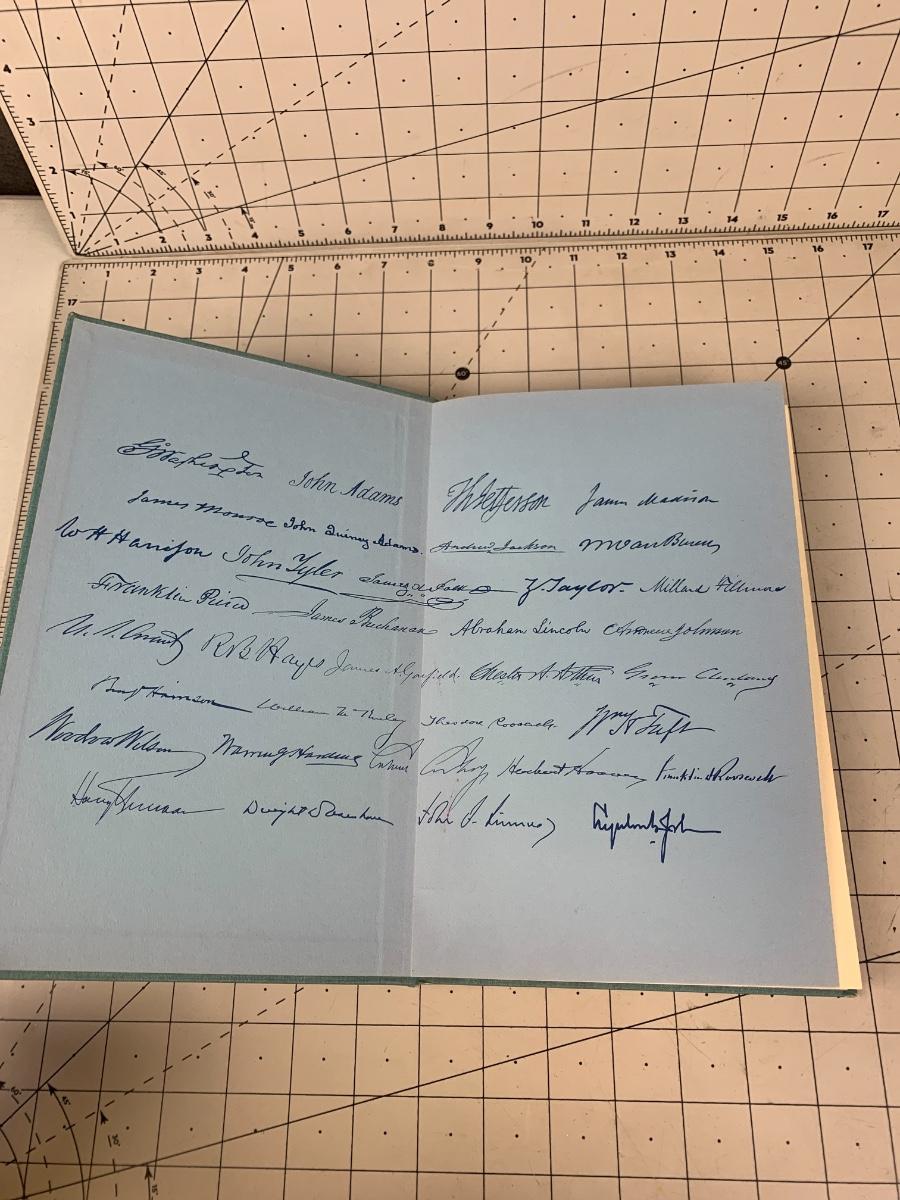 4
3
2
1
1 2 3 4 5 6 7 8 9 10 11 12 13 14 15 16 17
1 2 3 4 5 6 7 8 9 10 11 12 13 14 15 16 17
17
60°
45°
G Washington John Adams Th Jefferson James Madison
James Monroe John Quincy Adams. Andrew Jackson M Van Buren
W H Harrison John Tyler James K. Polk Z. Taylor. Millard Fillmore
Franklin Pierce James Buchanan Abraham Lincoln Andrew Johnson
U. S. Grant R B Hayes James A. Garfield. Chester A. Arthur Grover Cleveland
Benj Harrison William McKinley Theodore Roosevelt Wm H Taft
Woodrow Wilson Warren G Harding Calvin Coolidge Herbert Hoover Franklin D Roosevelt
Harry Truman Dwight D Eisenhower John F. Kennedy Lyndon B. Johnson